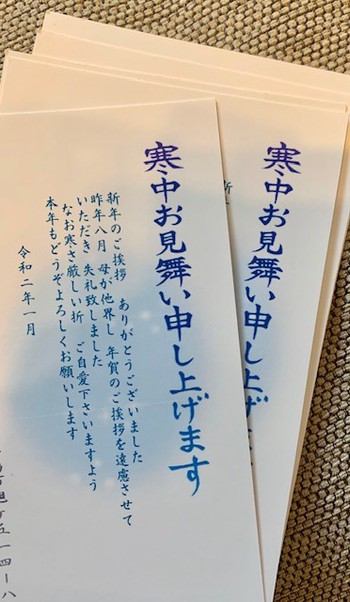 寒中お見舞い申し上げます
新年のご挨拶　ありがとうございました
昨年八月　母が他界し　年賀のご挨拶を遠慮させて
いただき　失礼致しました
なお寒さ厳しい折　ご自愛下さいますよう
本年もどうぞよろしくお願いします
令和二年一月
五一四ー八
寒中お見舞い申し上げ